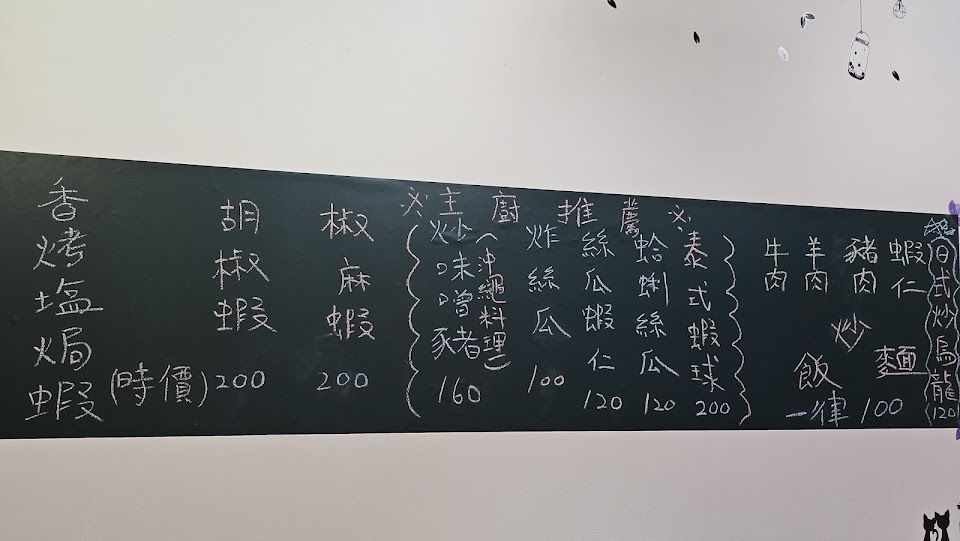 香烤塩焗蝦(時價)
胡椒蝦 200
椒麻蝦 200
※主廚推薦※
炒味噌豬(沖繩料理) 160
炸絲瓜 100
絲瓜蝦仁 120
蛤蜊絲瓜 120
泰式蝦球 200
牛肉 羊肉 豬肉 蝦仁
炒
飯 麵
一律 100
日式炒烏龍 120